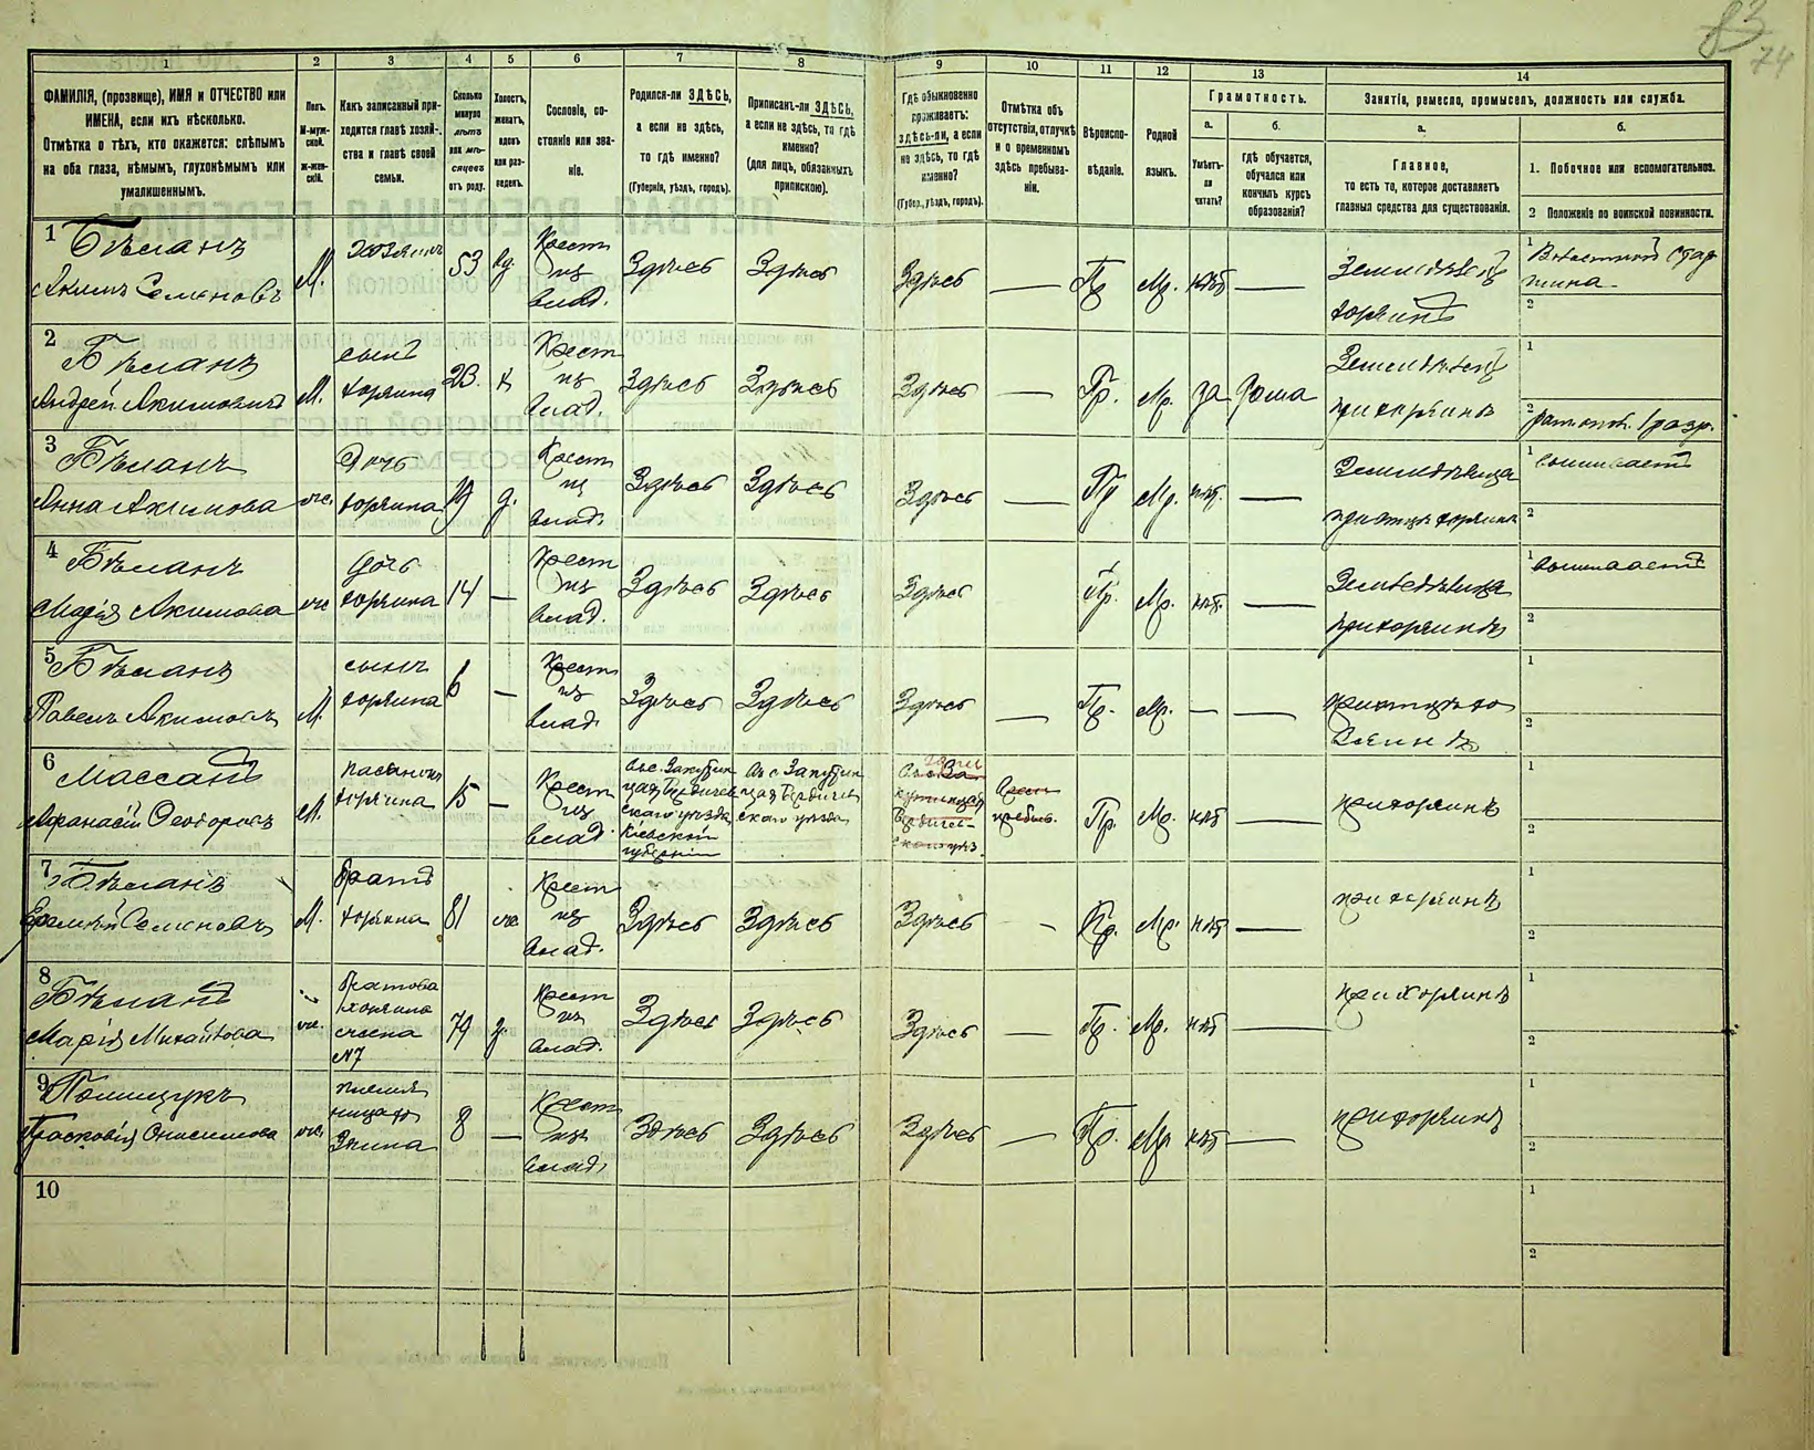 83
74
1
2
3
4
5
6
7
8
9
10
11
12
13
14
ФАМИЛІЯ, (прозвище), ИМЯ и ОТЧЕСТВО или
ИМЕНА, если ихъ нѣсколько.
Отмѣтка о тѣхъ, кто окажется: слѣпымъ
на оба глаза, нѣмымъ, глухонѣмымъ или
умалишеннымъ.
Полъ.
М-муж-
ской.
ж-жен-
скій.
Какъ записанный при-
ходится главѣ хозяй-
ства и главѣ своей
семьи.
Сколько
минуло
лѣтъ
или мѣ-
сяцевъ
отъ роду.
Холостъ,
женатъ,
вдовъ
или раз-
веденъ.
Сословіе, со-
стояніе или зва-
ніе.
Родился-ли ЗДѢСЬ,
а если не здѣсь,
то гдѣ именно?
(Губернія, уѣздъ, городъ).
Приписанъ-ли ЗДѢСЬ,
а если не здѣсь, то гдѣ
именно?
(для лицъ, обязанныхъ
припискою).
Гдѣ обыкновенно
проживаетъ:
здѣсь-ли, а если
не здѣсь, то гдѣ
именно?
(Губер., уѣздъ, городъ).
Отмѣтка объ
отсутствіи, отлучкѣ
и о временномъ
здѣсь пребыва-
ніи.
Вѣроиспо-
вѣданіе.
Родной
языкъ.
Грамотность.
а.
Умѣетъ-
ли
читать?
б.
гдѣ обучается,
обучался или
кончилъ курсъ
образованія?
Занятіе, ремесло, промыселъ, должность или служба.
а.
Главное,
то есть то, которое доставляетъ
главныя средства для существованія.
б.
1. Побочное или вспомогательное.
2 Положеніе по воинской повинности.
1 Бѣланъ
Акимъ Семеновъ
М.
Хозяинъ
53
вд.
Крест
из
влад.
Здѣсь
Здѣсь
Здѣсь
—
Пр
Мр.
нѣт
—
Земледѣлец
хозяинъ
1
2
2 Бѣланъ
Андрей Акимовичъ
М.
сынъ
хозяина
23.
х
Крест
из
влад.
Здѣсь
Здѣсь
Здѣсь
—
Пр.
Мр.
да
дома
Земледѣлец
при хозяинѣ
1
2
3 Бѣланъ
Анна Акимова
ж.
Дочь
хозяина
19
д.
Крест
из
влад.
Здѣсь
Здѣсь
Здѣсь
—
Пр
Мр.
нѣт.
—
Земледѣлица
при отцѣ хозяинѣ
1 вышивает
2
4 Бѣланъ
Марія Акимова
ж
дочь
хозяина
14
—
Крест
из
влад.
Здѣсь
Здѣсь
Здѣсь
Пр.
Мр.
нѣт.
—
Земледѣлица
при хозяинѣ
1 вышивает
2
5 Бѣланъ
Павелъ Акимовъ
М.
сынъ
хозяина
6
—
Крест
из
влад.
Здѣсь
Здѣсь
Здѣсь
—
Пр.
Мр.
—
—
при отцѣ хо
зяинѣ
1
2
6 Массанъ
Афанасій Феодоровъ
М.
пасынок
хозяина
15
—
Крест
из
влад.
Бердичев
скаго уѣзда
Кіевской
губерніи
скаго уѣзда
Пр.
Мр.
нѣт
—
при хозяинѣ
1
2
7 Бѣланъ
Семеновъ
М.
братъ
хозяина
81
ж
Крест
из
влад.
Здѣсь
Здѣсь
Здѣсь
-
Пр.
Мр.
нѣт
—
при хозяинѣ
1
2
8 Бѣланъ
Марія Михайлова
ж.
братова
хозяина
жена
№7
79
з.
Крест
из
влад.
Здѣсь
Здѣсь
Здѣсь
—
Пр.
Мр.
нѣт
—
при хозяинѣ
1
2
9 Полищукъ
Прасковія Онисимова
ж.
племян
ница хо
зяина
8
—
Крест
из
влад.
Здѣсь
Здѣсь
Здѣсь
—
Пр.
Мр
нѣт
—
при хозяинѣ
1
2
10
1
2